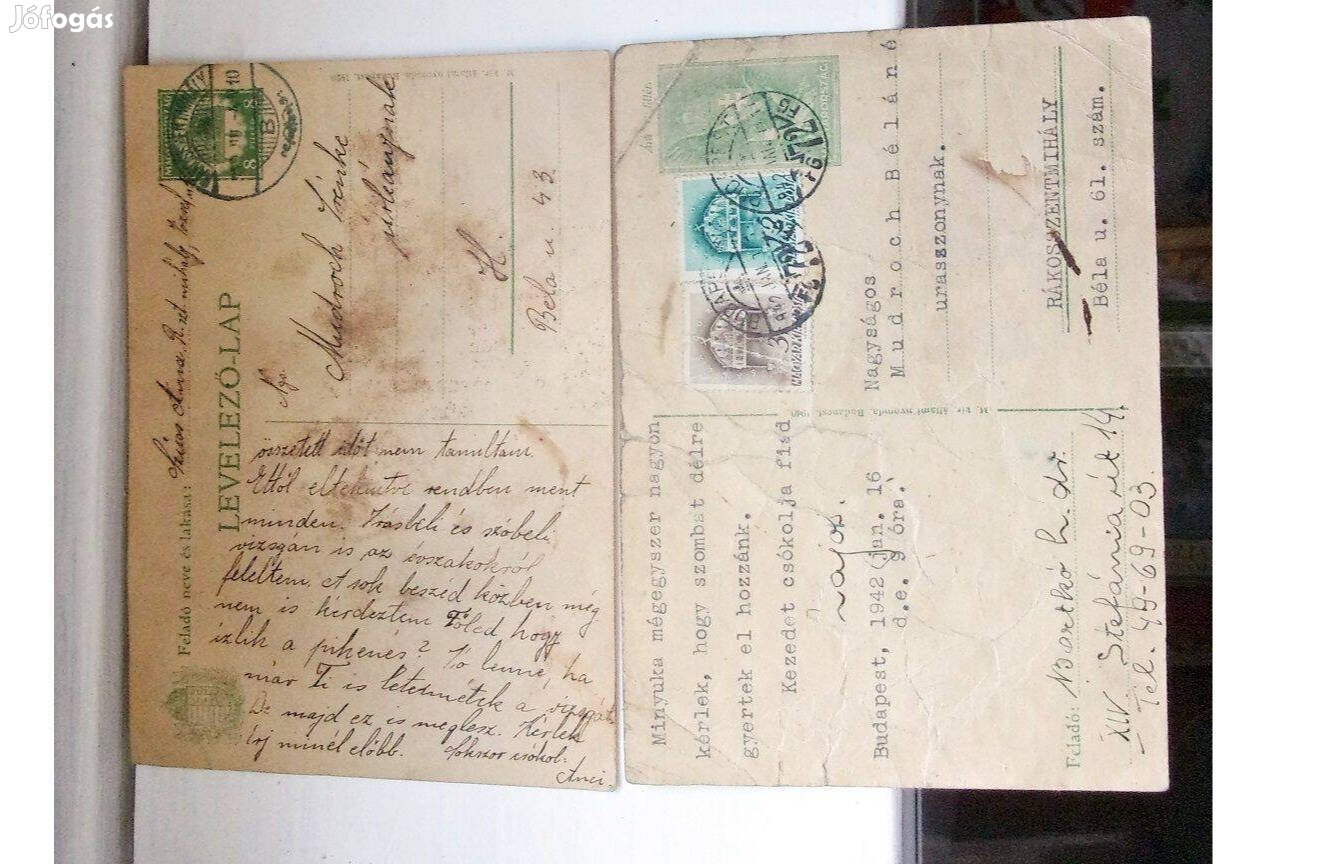 Jófogás
Feladó neve és lakása:
LEVELEZŐ-LAP
M. kir. állami nyomda, Budapest, 192
10
8 8
B
Ngs.
Mudroch Irénke
úrleánynak
H.
Béla u. 43.
összetett időt nem tanultam.
Ettől eltekintve rendben ment
minden. Írásbeli és szóbeli
vizsgán is az évszakokról
feleltem. A sok beszéd közben még
nem is kérdeztem Tőled, hogy
ízlik a pihenés? Jó lenne, ha
már Ti is letennétek a vizsgát
De majd ez is meglesz. Kérlek
írj minél előbb. Sokszor csókol:
Anci.
Minyuka mégegyszer nagyon
kérlek, hogy szombat délre
gyertek el hozzánk.
Kezedet csókolja fiad
Lajos.
Budapest, 1942 jan. 16
d.e. 9 óra.
Feladó: Bartkó h. dr.
XIV. Stefánia út 14.
Tel. 49-69-03.
M. kir. állami nyomda, Budapest, 194
Nagyságos
Mudroch Béláné
uraszonynak.
RÁKOSSZENTMIHÁLY
Béla u. 61. szám.